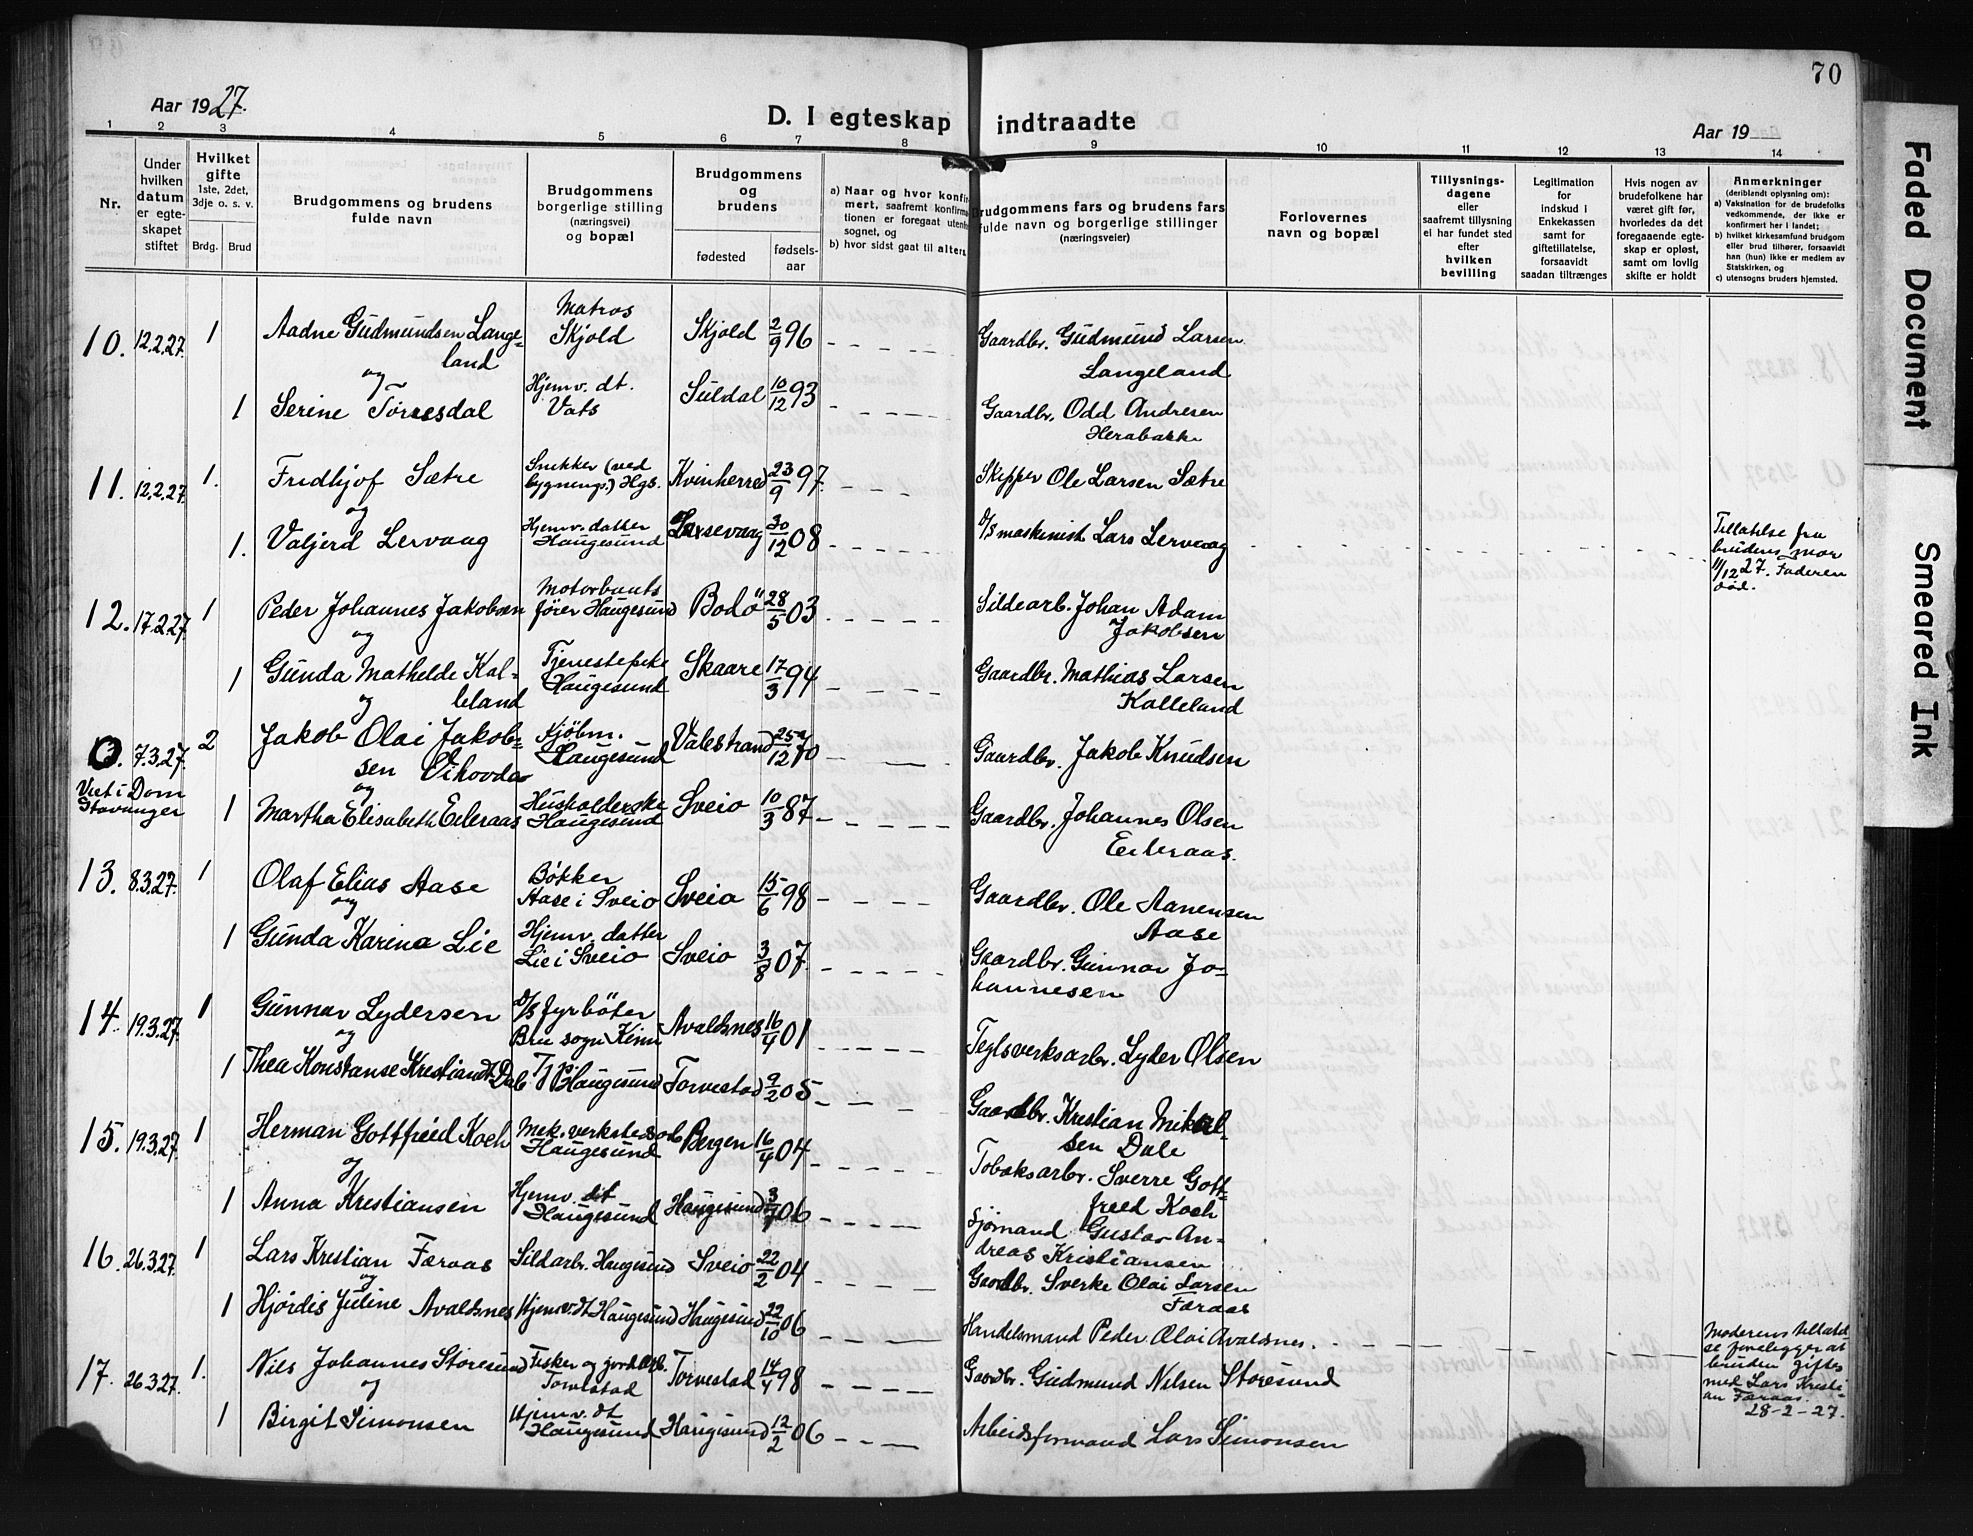 70
Aar 1927.
D. I egteskap indtraadte
Aar 19
1 2 3 4 5 6 7 8 9 10 11 12 13 14
Nr.
Under hvilken datum er egte-skapet stiftet
Hvilket gifte
1ste, 2det, 3dje o. s. v.
Brdg. Brud
Brudgommens og brudens fulde navn
Brudgommens borgerlige stilling (næringsvei) og bopæl
Brudgommens og brudens
fødested
fødsels-aar
a) Naar og hvor konfir-mert, saafremt konfirma-tionen er foregaat utenfor sognet, og
b) hvor sidst gaat til alters.
Brudgommens fars og brudens fars fulde navn og borgerlige stillinger (næringsveier)
Forlovernes navn og bopæl
Tillysnings-dagene eller saafremt tillysning ei har fundet sted efter hvilken bevilling
Legitimation for indskud i Enkekassen samt for giftetillatelse, forsaavidt saadan tiltrænges
Hvis nogen av brudefolkene har været gift før, hvorledes da det foregaaende egte-skap er opløst, samt om lovlig skifte er holdt
Anmerkninger
(deriblandt oplysning om):
a) Vaksination for de brudefolks vedkommende, der ikke er konfirmert her i landet;
b) hvilket kirkesamfund brudgom eller brud tilhører, forsaavidt han (hun) ikke er medlem av Statskirken, og
c) utensogns bruders hjemsted.
10. 12.2.27. 1 Aadne Gudmundsen Lange-land Matros Skjold Skjold 2/9 96 Gaardbr. Gudmund Larsen Langeland
og
1 Serine Torresdal Hjemv. dt. Vats Suldal 10/12 93 Gaardbr. Odd Andresen Herabakke
11. 12.2.27 1. Fridhjof Sætre Snekker (ved bygnings.) Hgs. Kvinherred 23/9 97. Skipper Ole Larsen Sætre
og
1. Valjerd Lervaag Hjemv. datter Haugesund 30/12 08 D/S maskinist Lars Lervaag Tillatelse fra brudens mor 11/12 27. Faderen död.
12. 17.2.27. 1 Peder Johannes Jakobsen Motorbaats förer Haugesund Bodö 28/5 03 Sildearb. Johan Adam Jakobsen
og
1 Gunda Mathilde Kal-leland Tjenestepike Haugesund Skaare 17/3 94 Gaardbr. Mathias Larsen Kalleland
7.3.27. 2 Jakob Olai Jakob-sen Vihovda Kjöbm. Haugesund Valestrand 25/12 70 Gaardbr. Jakob Knudsen
Viet i Dom Stavanger
og
1 Martha Elisabeth Eileraas Husholderske Haugesund Sveio 10/3 87 Gaardbr. Johannes Olsen Eileraas.
13. 8.3.27. 1 Olaf Elias Aase Bökker Aase i Sveio Sveio 15/6 98 Gaardbr. Ole Aanensen Aase
og
1 Gunda Karina Lie Hjemv. datter Lie i Sveio Sveio 3/8 07. Gaardbr. Gunnar Jo-hannesen
14. 19.3.27. 1 Gunnar Lydersen D/S fyrböter Bru sogn Kinn Avaldsnes 16/4 01 Teglsverksarbr. Lyder Olsen
og
1 Thea Konstanse Kristiandt. Dale Tjp. Haugesund Torvestad 9/2 05 Gaardbr. Kristian Mikal-sen Dale
15. 19.3.27. 1 Herman Gottfried Koch Mek. verksteds arb Haugesund Bergen 16/4 04 Tobaksarbr. Sverre Gott-fried Koch
og
1 Anna Kristiansen Hjemv. dt Haugesund Haugesund 3/7 06 Sjömand Gustav An-dreas Kristiansen
16. 26.3.27. 1 Lars Kristian Færaas Sildarbr. Haugesund Sveio 22/2 04 Gaardbr. Sverke Olai Larsen Færaas
og
1 Hjördis Juline Avaldsnes Hjemv. dt Haugesund Haugesund 22/10 06 Handelsmand Peder Olai Avaldsnes. Moderens tillatel-se foreligger at bruden giftes med Lars Kristi-an Færaas. 28-2-27.
17. 26.3.27. 1. Nils Johannes Storesund Fisker og jordarb. Torvestad Torvestad 14/4 98 Gaardbr. Gudmund Nilsen Storesund
og
1 Birgit Simonsen Hjemv. dt Haugesund Haugesund 12/2 06 Arbeidsformand Lars Simonsen
Faded Document
Smeared Ink